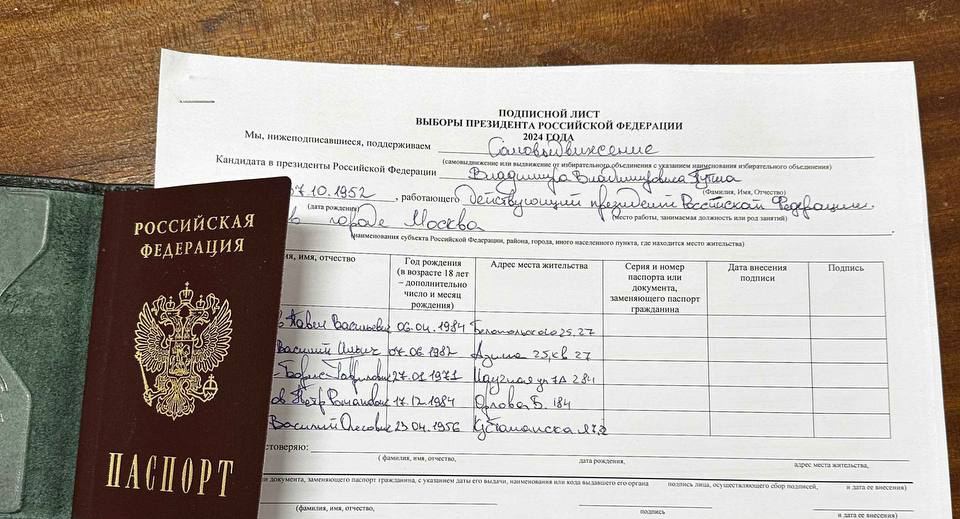 ПОДПИСНОЙ ЛИСТ
ВЫБОРЫ ПРЕЗИДЕНТА РОССИЙСКОЙ ФЕДЕРАЦИИ
2024 ГОДА
Мы, нижеподписавшиеся, поддерживаем Самовыдвижение
(самовыдвижение или выдвижение от избирательного объединения с указанием наименования избирательного объединения)
Кандидата в президенты Российской Федерации Владимира Владимировича Путина
(Фамилия, Имя, Отчество)
7.10.1952, работающего действующий президент Российской Федерации.
(дата рождения)
(место работы, занимаемая должность или род занятий)
в городе Москва
(наименования субъекта Российской Федерации, района, города, иного населенного пункта, где находится место жительства)
имя, отчество
Год рождения (в возрасте 18 лет – дополнительно число и месяц рождения)
Адрес места жительства
Серия и номер паспорта или документа, заменяющего паспорт гражданина
Дата внесения подписи
Подпись
Павел Васильевич 06.04.1984 25.27
Василий Ильич 04.06.1982 Азина 25, кв 27
Борис 27.01.1971 Научная ул 7А 284
Пётр Романович 17.12.1984 Орлова Б. 184
Василий Олегович 23.04.1956
достоверяю:
( фамилия, имя, отчество,
дата рождения,
адрес места жительства,
или документа, заменяющего паспорт гражданина, с указанием даты его выдачи, наименования или кода выдавшего его органа
подпись лица, осуществляющего сбор подписей,
и дата ее внесения)
(фамилия, имя, отчество,
подпись
и дата ее внесения)
РОССИЙСКАЯ
ФЕДЕРАЦИЯ
ПАСПОРТ